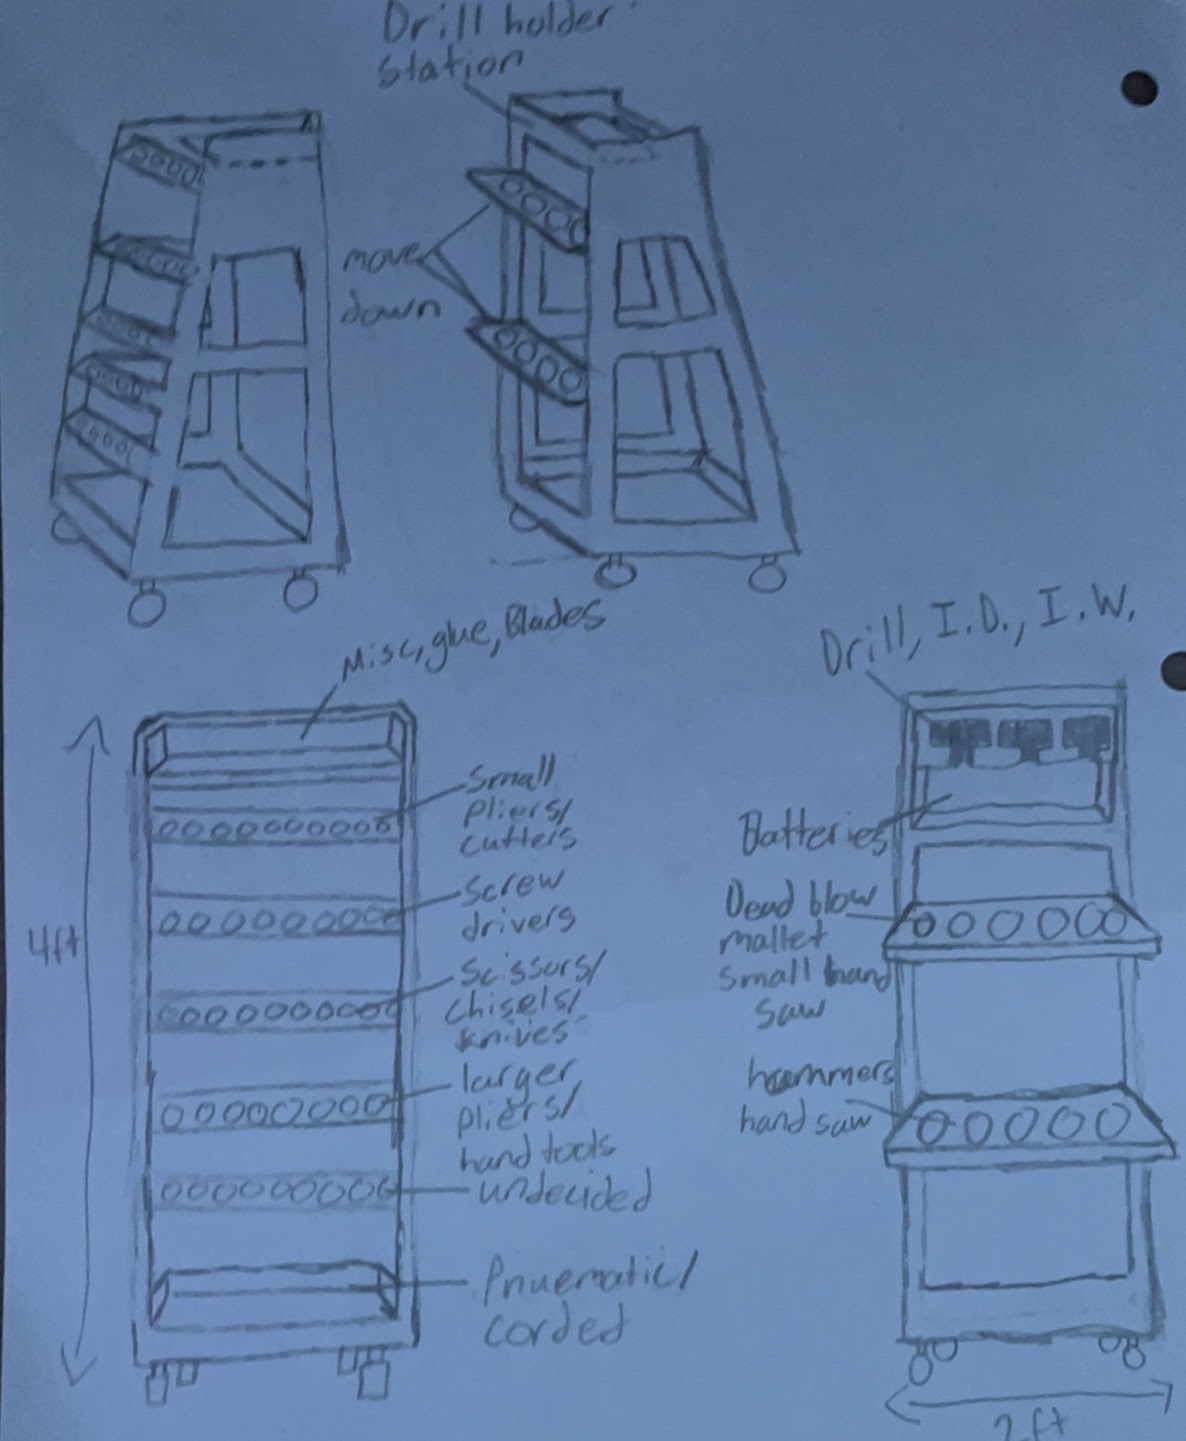 Drill holder
station
move
down
Misc, glue, Blades
4ft
small
pliers/
cutters
screw
drivers
scissors/
chisels/
knives
larger
pliers/
hand tools
undecided
Pnuematic/
corded
Drill, I.D., I.W.
Batteries
Dead blow
mallet
small hand
saw
hammers
hand saw
2ft